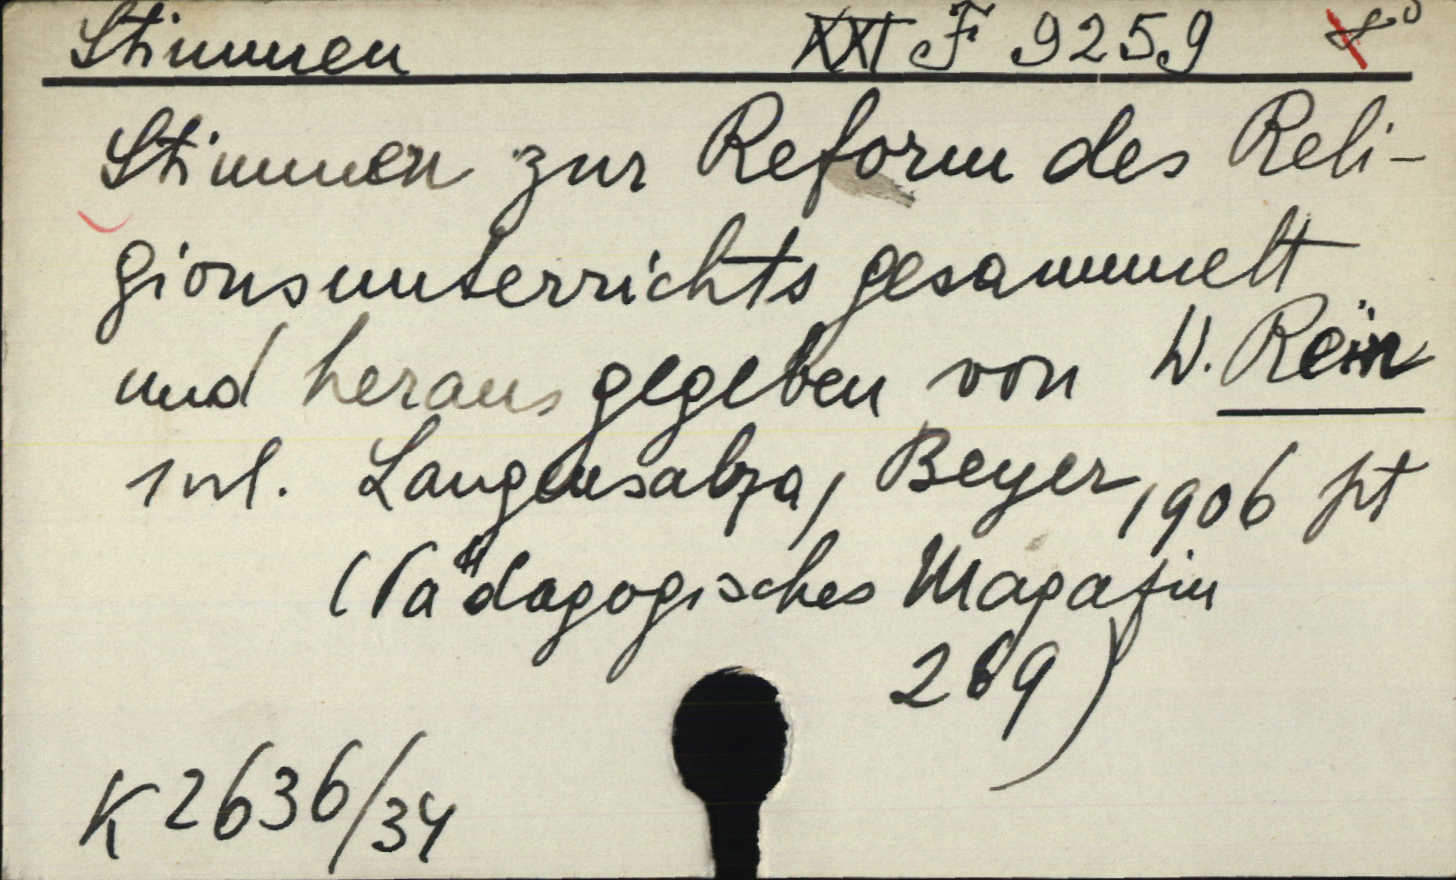 Stimmen XXI F 9259 8°
Stimmen zur Reform des Reli-
gionsunterrichts gesammelt
und herausgegeben von W. Rein
1vl. Langensalza, Beyer, 1906
(Pädagogisches Magazin
269)
K 2636/34